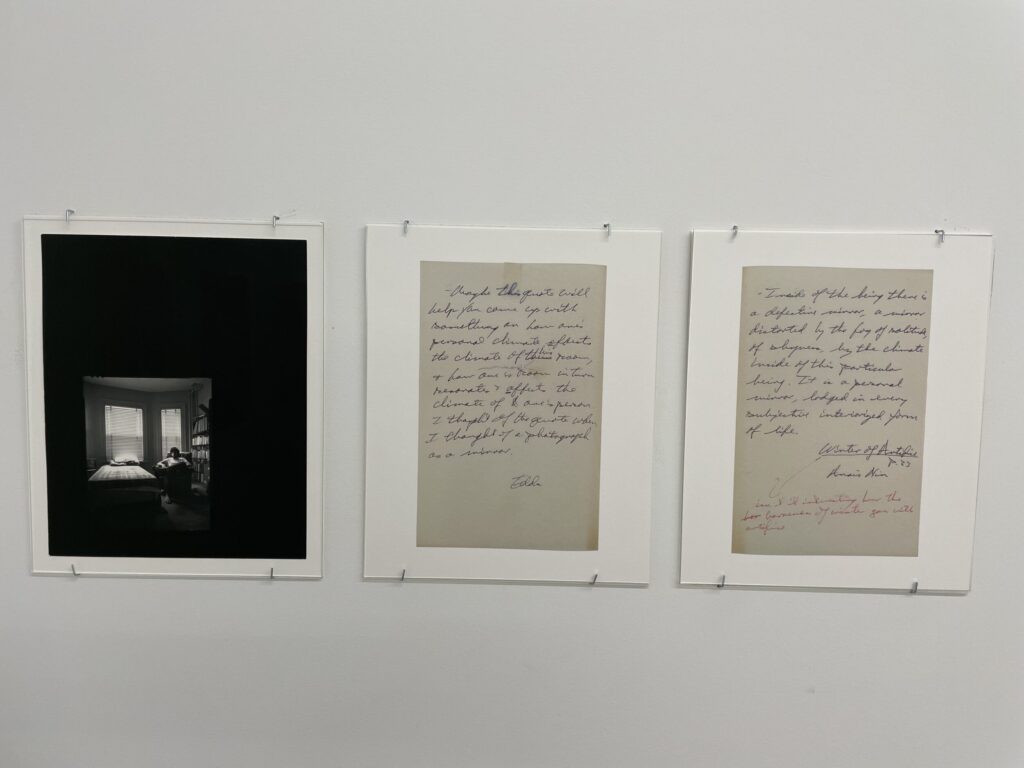 - Maybe this quote will
help you come up with
something on how one's
personal climate affects
the climate of his room,
& how one's room in turn
resonates & affects the
climate of one's person.
I thought of the quote when
I thought of a photograph
as a mirror.
Edda
- Inside of the being there is
a defective mirror, a mirror
distorted by the fog of solitude,
of shyness, by the climate
inside of this particular
being. It is a personal
mirror, lodged in every
subjective interiorized form
of life.
Winter of Artifice
Anais Nin
interesting how the
barrenness of winter goes with
artifice